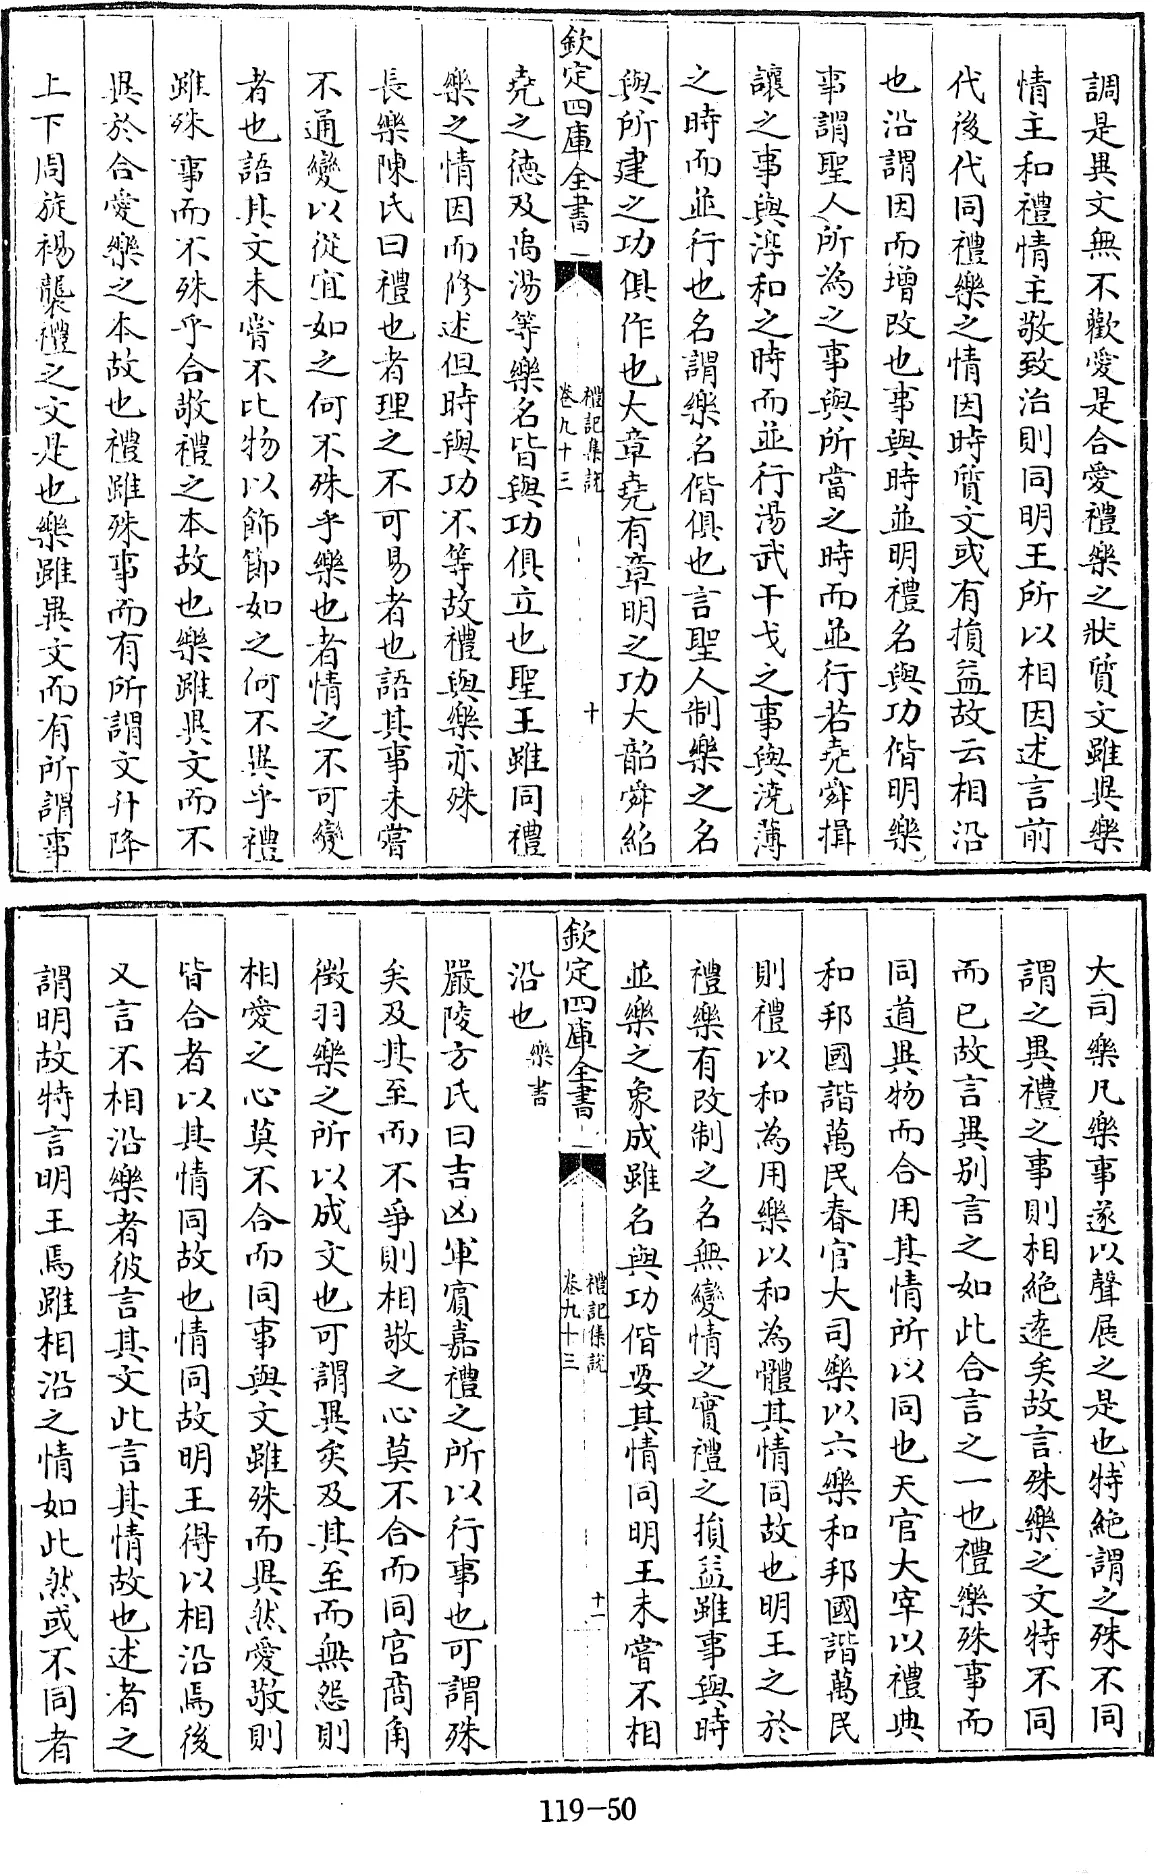 調是異文無不歡愛是合愛禮樂之狀質文雖異樂
情主和禮情主敬致治則同明王所以相因述言前
代後代同禮樂之情因時質文或有損益故云相沿
也沿謂因而增改也事與時並明禮名與功偕明樂
事謂聖人所為之事與所當之時而並行若堯舜揖
讓之事與淳和之時而並行湯武干戈之事與澆薄
之時而並行也名謂樂名偕俱也言聖人制樂之名
與所建之功俱作也大章堯有章明之功大韶舜紹
欽定四庫全書
禮記集說
卷九十三
十
堯之德及禹湯等樂名皆與功俱立也聖王雖同禮
樂之情因而脩述但時與功不等故禮與樂亦殊
長樂陳氏曰禮也者理之不可易者也語其事未嘗
不通變以從宜如之何不殊乎樂也者情之不可變
者也語其文未嘗不比物以飾節如之何不異乎禮
雖殊事而不殊乎合敬禮之本故也樂雖異文而不
異於合愛樂之本故也禮雖殊事而有所謂文升降
上下周旋裼襲禮之文是也樂雖異文而有所謂事
大司樂凡樂事遂以聲展之是也特絶謂之殊不同
謂之異禮之事則相絶逺矣故言殊樂之文特不同
而已故言異别言之如此合言之一也禮樂殊事而
同道異物而合用其情所以同也天官大宰以禮典
和邦國諧萬民春官大司樂以六樂和邦國諧萬民
則禮以和為用樂以和為體其情同故也明王之於
禮樂有改制之名無變情之實禮之損益雖事與時
並樂之象成雖名與功偕要其情同明王未嘗不相
欽定四庫全書
禮記集說
卷九十三
十一
沿也樂書
嚴陵方氏曰吉凶軍賓嘉禮之所以行事也可謂殊
矣及其至而不爭則相敬之心莫不合而同宮商角
徵羽樂之所以成文也可謂異矣及其至而無怨則
相愛之心莫不合而同事與文雖殊而異然愛敬則
皆合者以其情同故也情同故明王得以相沿焉後
又言不相沿樂者彼言其文此言其情故也述者之
謂明故特言明王焉雖相沿之情如此然或不同者
119-50